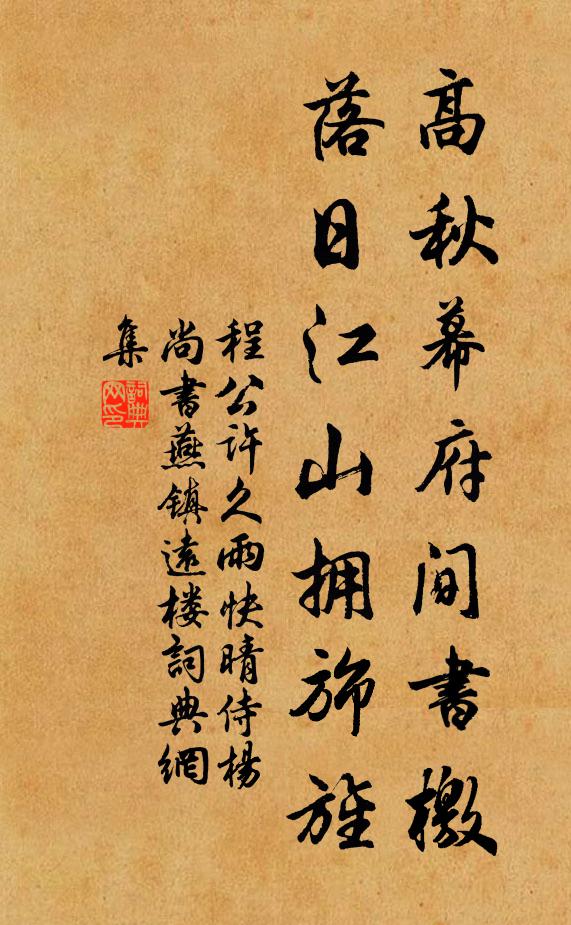 高秋幕府間書檄
落日江山拥旆旌
程公許久雨快晴侍楊
尚書燕鎮遠樓詞典網
集
詞典
网印